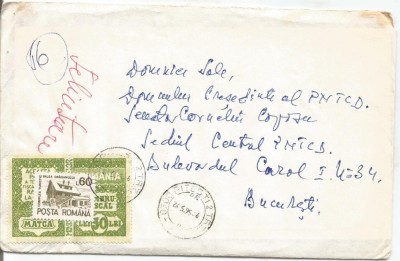 6
Felicitare
Domniei Sale,
Domnului Președinte al PNȚCD.
Senator Corneliu Coposu
Sediul Central PNȚCD.
Bulevardul Carol I, N=34.
București.
60
POȘTA ROMÂNĂ
MÂNIA
MATCA
50LEI